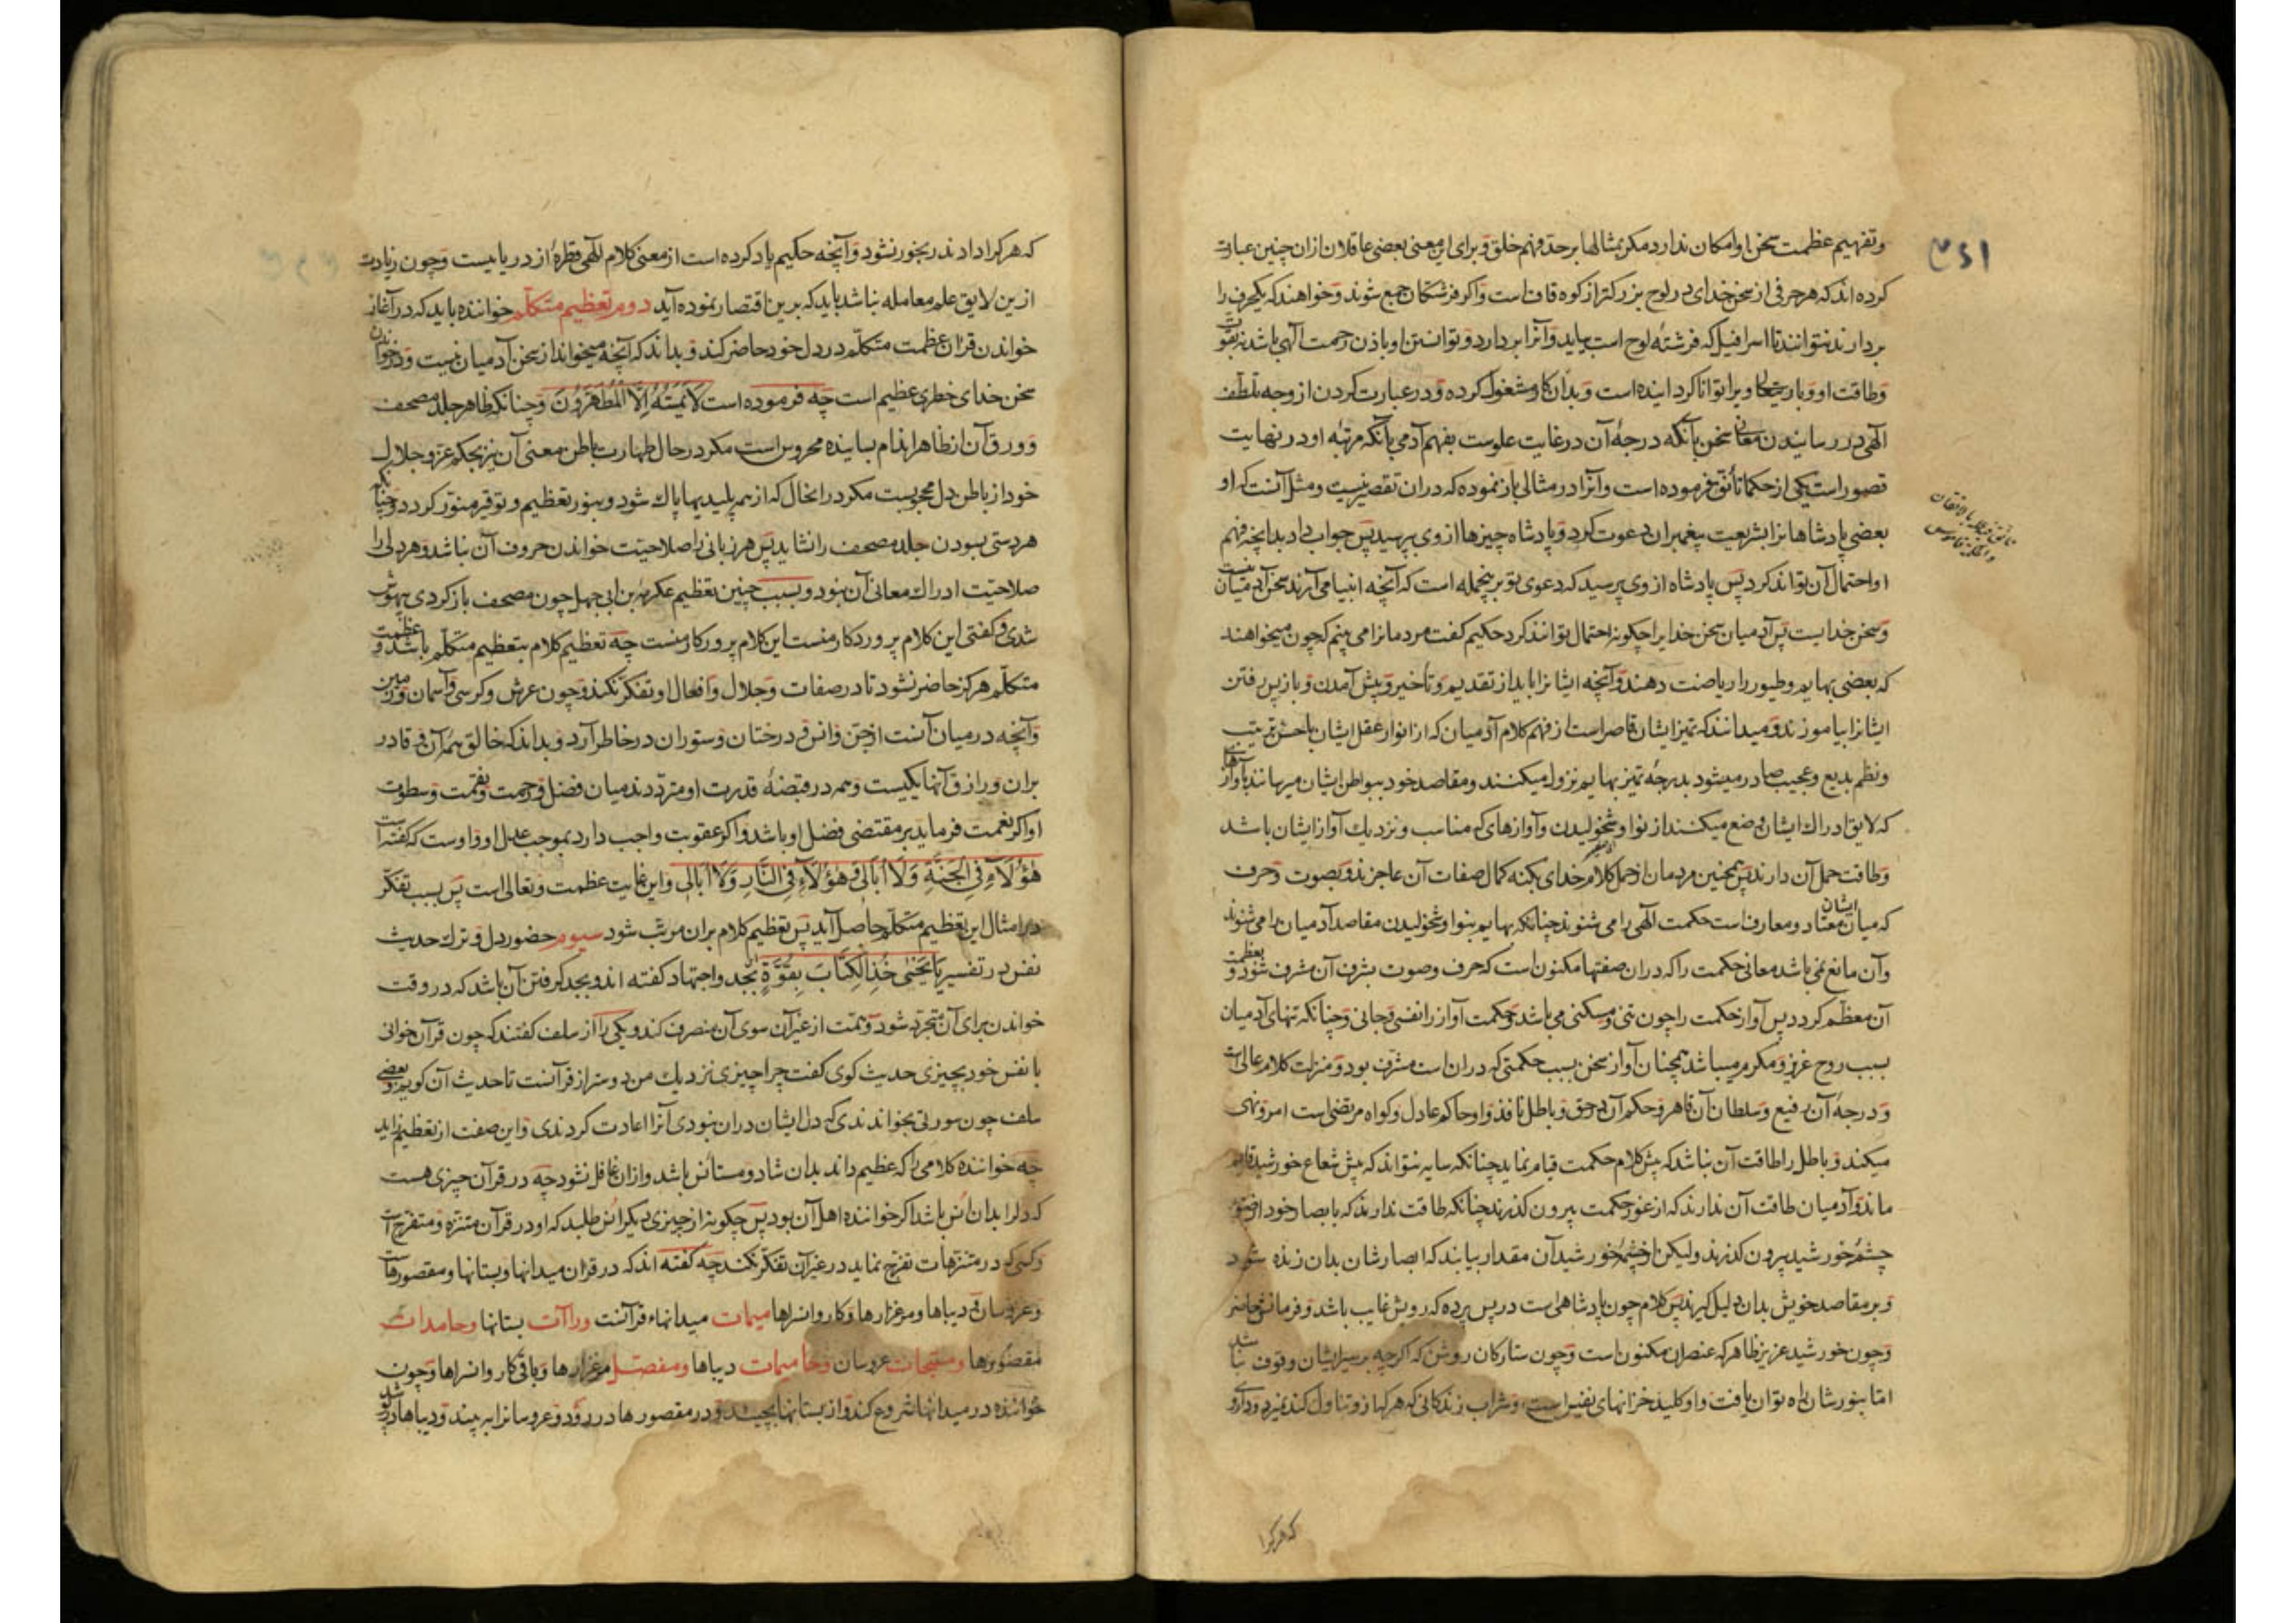 و تفهیم عظمت سخن او امکان ندارد مکر بمثالها بر حد فهم خلق و برای این معنی بعضی عاقلان ازان چنین عبارت
کرده اند که هر حرفی از سخن خدای در لوح بزرکتر از کوه قاف است و اکر فرشتکان جمع شوند و خواهند که یکحرف را
بردارند نتوانند تا اسرافیل که فرشتهٔ لوح است بیاید و آنرا بردارد و توانستن او باذن و رحمت آلهی باشد نه بقوت
و طاقت او و باری تعالی ویرا توانا کردانیده است و بدان کار مشغول کرده و در عبارت کردن از وجه تلطف
آلهی در رسانیدن معانی سخن بآنکه درجهٔ آن در غایت علوست بفهم آدمی بآنکه مرتبهٔ او در نهایت
قصور است یکی از حکما تأنق فرموده است و آنرا در مثالی باز نموده که دران تقصیر نیست و مثل آنست که او
بعضی پادشاهانرا بشریعت پیغمبران دعوت کرد و پادشاه چیزها از وی پرسید پس جواب داد بدانچه فهم
او احتمال آن تواند کرد پس پادشاه از وی پرسید که دعوی تو برینجمله است که آنچه انبیا می آرند سخن آدمیان نیست
و سخن خدایست پس آدمیان سخن خدایرا چکونه احتمال توانند کرد حکیم کفت مردمانرا می بینم که چون میخواهند
که بعضی بهایم و طیور را ریاضت دهند و آنچه ایشانرا باید از تقدیم و تأخیر و پیش آمدن و باز پس رفتن
ایشانرا بیاموزند و میدانند که تمیز ایشان قاصر است از فهم کلام آدمیان که از انوار عقل ایشان باحسن ترتیب
و نظم بدیع و عجیب صادر میشود بدرجهٔ تمیز بهایم نزول میکنند و مقاصد خود ببواطن ایشان میرسانند بآوازهای
که لایق ادراک ایشان وضع میکنند از نوا و شخولیدن و آوازهای که مناسب و نزدیک آواز ایشان باشد
و طاقت حمل آن دارند پس همچنین مردمان از حمل کلام خدای بکنه کمال صفات آن عاجزند و بصوت و حرف
که میان ایشان معتاد و معارف است حکمت آلهی را می شنوند چنانکه بهایم بنوا و شخولیدن مقاصد آدمیان را می شنوند
و آن مانع نمی باشد معانی حکمت را که دران صفتها مکنون است که حرف و صوت بشرف آن مشرف شود و بعظمت
آن معظم کردد پس آواز حکمت را چون تنی و مسکنی می باشد و حکمت آواز را نفسی و جانی و چنانکه تنهای آدمیان
بسبب روح عزیز و مکرم میباشد همچنان آواز سخن بسبب حکمتی که دران است مشرف بود و منزلت کلام عالی است
و درجهٔ آن رفیع و سلطان آن قاهر و حکم آن در حق و باطل نافذ و او حاکم عادل و کواه مرتضی است امر و نهی
میکند و باطل را طاقت آن نباشد که پیش کلام حکمت قیام نماید چنانکه سایه نتواند که پیش شعاع خورشید قایم
ماند و آدمیان طاقت آن ندارند که از غور حکمت بیرون کذرند چنانکه طاقت ندارند که بابصار خود از ضوء
چشمهٔ خورشید بیرون کذرند ولیکن از چشمهٔ خورشید آن مقدار بیابند که ابصارشان بدان زنده شود
و بر مقاصد خویش بدان دلیل کیرند پس کلام چون پادشاهی است در پس پرده که رویش غایب باشد و فرمانش حاضر
و چون خورشید عزیز ظاهر که عنصر آن مکنون است و چون ستارکان روشن که اکرچه بر سیر ایشان وقوف نباشد
اما بنورشان راه توان یافت و او کلید خزانهای نفیس است و شراب زندکانی که هر که ازو تناول کند نمیرد و داروی
که هرکرا
که هرکرا دادند رنجور نشود و آنچه حکیم یاد کرده است از معنی کلام آلهی قطرهٔ از دریاییست و چون زیادت
ازین لایق علم معامله نباشد باید که برین اقتصار نموده آید دوم تعظیم متکلم خواننده باید که در آغاز
خواندن قران عظمت متکلم در دل خود حاضر کند و بداند که آنچه میخواند از سخن آدمیان نیست و در خواندن
سخن خدای خطری عظیم است چه فرموده است لَا یَمَسُّهُ إِلَّا الْمُطَهَّرُونَ و چنانکه ظاهر جلد مصحف
و ورق آن از ظاهر اندام بساینده محروس است مکر در حال طهارت باطن معنی آن نیز بحکم عز و جلال
خود از باطن دل محجوبست مکر در انحال که از همه پلیدیها پاک شود و بنور تعظیم و توقیر منور کردد و چنانکه
هر دستی بسودن جلد مصحف را نشاید پس هر زبانی را صلاحیت خواندن حروف آن نباشد و هر دلی را
صلاحیت ادراک معانی آن نبود و بسبب چنین تعظیم عکرمة بن ابی جهل چون مصحف باز کردی بیهوش
شدی و کفتی این کلام پروردکار منست این کلام پرورکار منست چه تعظیم کلام بتعظیم متکلم باشد و عظمت
متکلم هرکز حاضر نشود تا در صفات و جلال و افعال او تفکر نکند و چون عرش و کرسی و آسمان و زمین
و آنچه در میان آنست از جن و انس و درختان و ستوران در خاطر آرد و بداند که خالق همه آن و قادر
بران و رازق آنها یکیست و همه در قبضهٔ قدرت او مترددند میان فضل و رحمت و نقمت و سطوت
او اکر نعمت فرماید بر مقتضی فضل او باشد و اکر عقوبت واجب دارد بموجب عدل او و اوست که کفته است
هٰؤُلَآءِ فِی الْجَنَّةِ وَلَا أُبَالِی وَ هٰؤُلَآءِ فِی النَّارِ وَلَا أُبَالِی و این غایت عظمت و تعالی است پس بسبب تفکر
در امثال این تعظیم متکلم حاصل آید پس تعظیم کلام بران مرتب شود سیوم حضور دل و ترک حدیث
نفس در تفسیر یَا یَحْیٰی خُذِ الْکِتَابَ بِقُوَّةٍ بجد و اجتهاد کفته اند و بجد کرفتن آن باشد که در وقت
خواندن برای آن متجرد شود و همت از غیر آن سوی آن منصرف کند و یکی را از سلف کفتند که چون قرآن خوانی
با نفس خود بچیزی حدیث کوی کفت چرا چیزی نزدیک من دوستر از قرآنست تا حدیث آن کویم و بعضی
سلف چون سورتی بخواندندی که دل ایشان دران نبودی آنرا اعادت کردندی و این صفت از تعظیم زاید
چه خواننده کلامی را که عظیم داند بدان شاد و مستأنس باشد و ازان غافل نشود چه در قرآن چیزی هست
که دل را بدان انس باشد اکر خواننده اهل آن بود پس چکونه از چیزی دیکر انس طلبد که او در قرآن متنزه و متفرج است
و کسی که در متنزهات تفرج نماید در غیر آن تفکر نکند چه کفته اند که در قران میدانها و بستانها و مقصورهاست
و عروسان و دیباها و مرغزارها و کاروانسراها میمات میدانهاء قرآنست و راآت بستانها و حامدات
مقصورها و مسبحات عروسان و حامیمات دیباها و مفصل مرغزارها و باقی کاروانسراها و چون
خواننده در میدانها شروع کند و از بستانها بچیند و در مقصورها در رود و عروسانرا به بیند و دیباها در پوشد